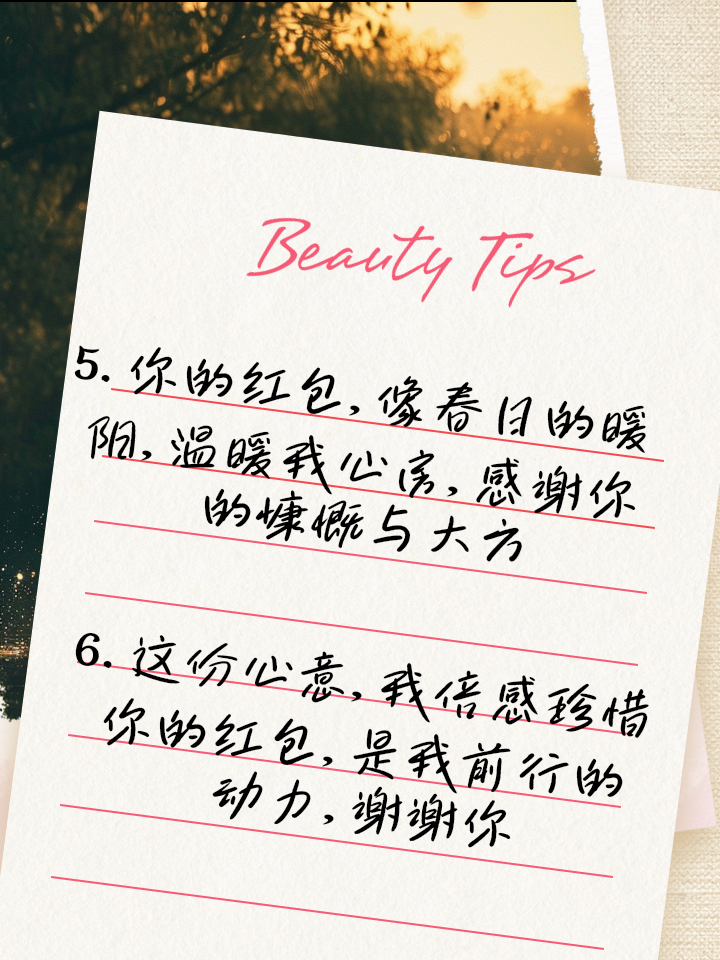 Beauty Tips
5. 你的红包,像春日的暖
阳,温暖我心房,感谢你
的慷慨与大方
6. 这份心意,我倍感珍惜
你的红包,是我前行的
动力,谢谢你